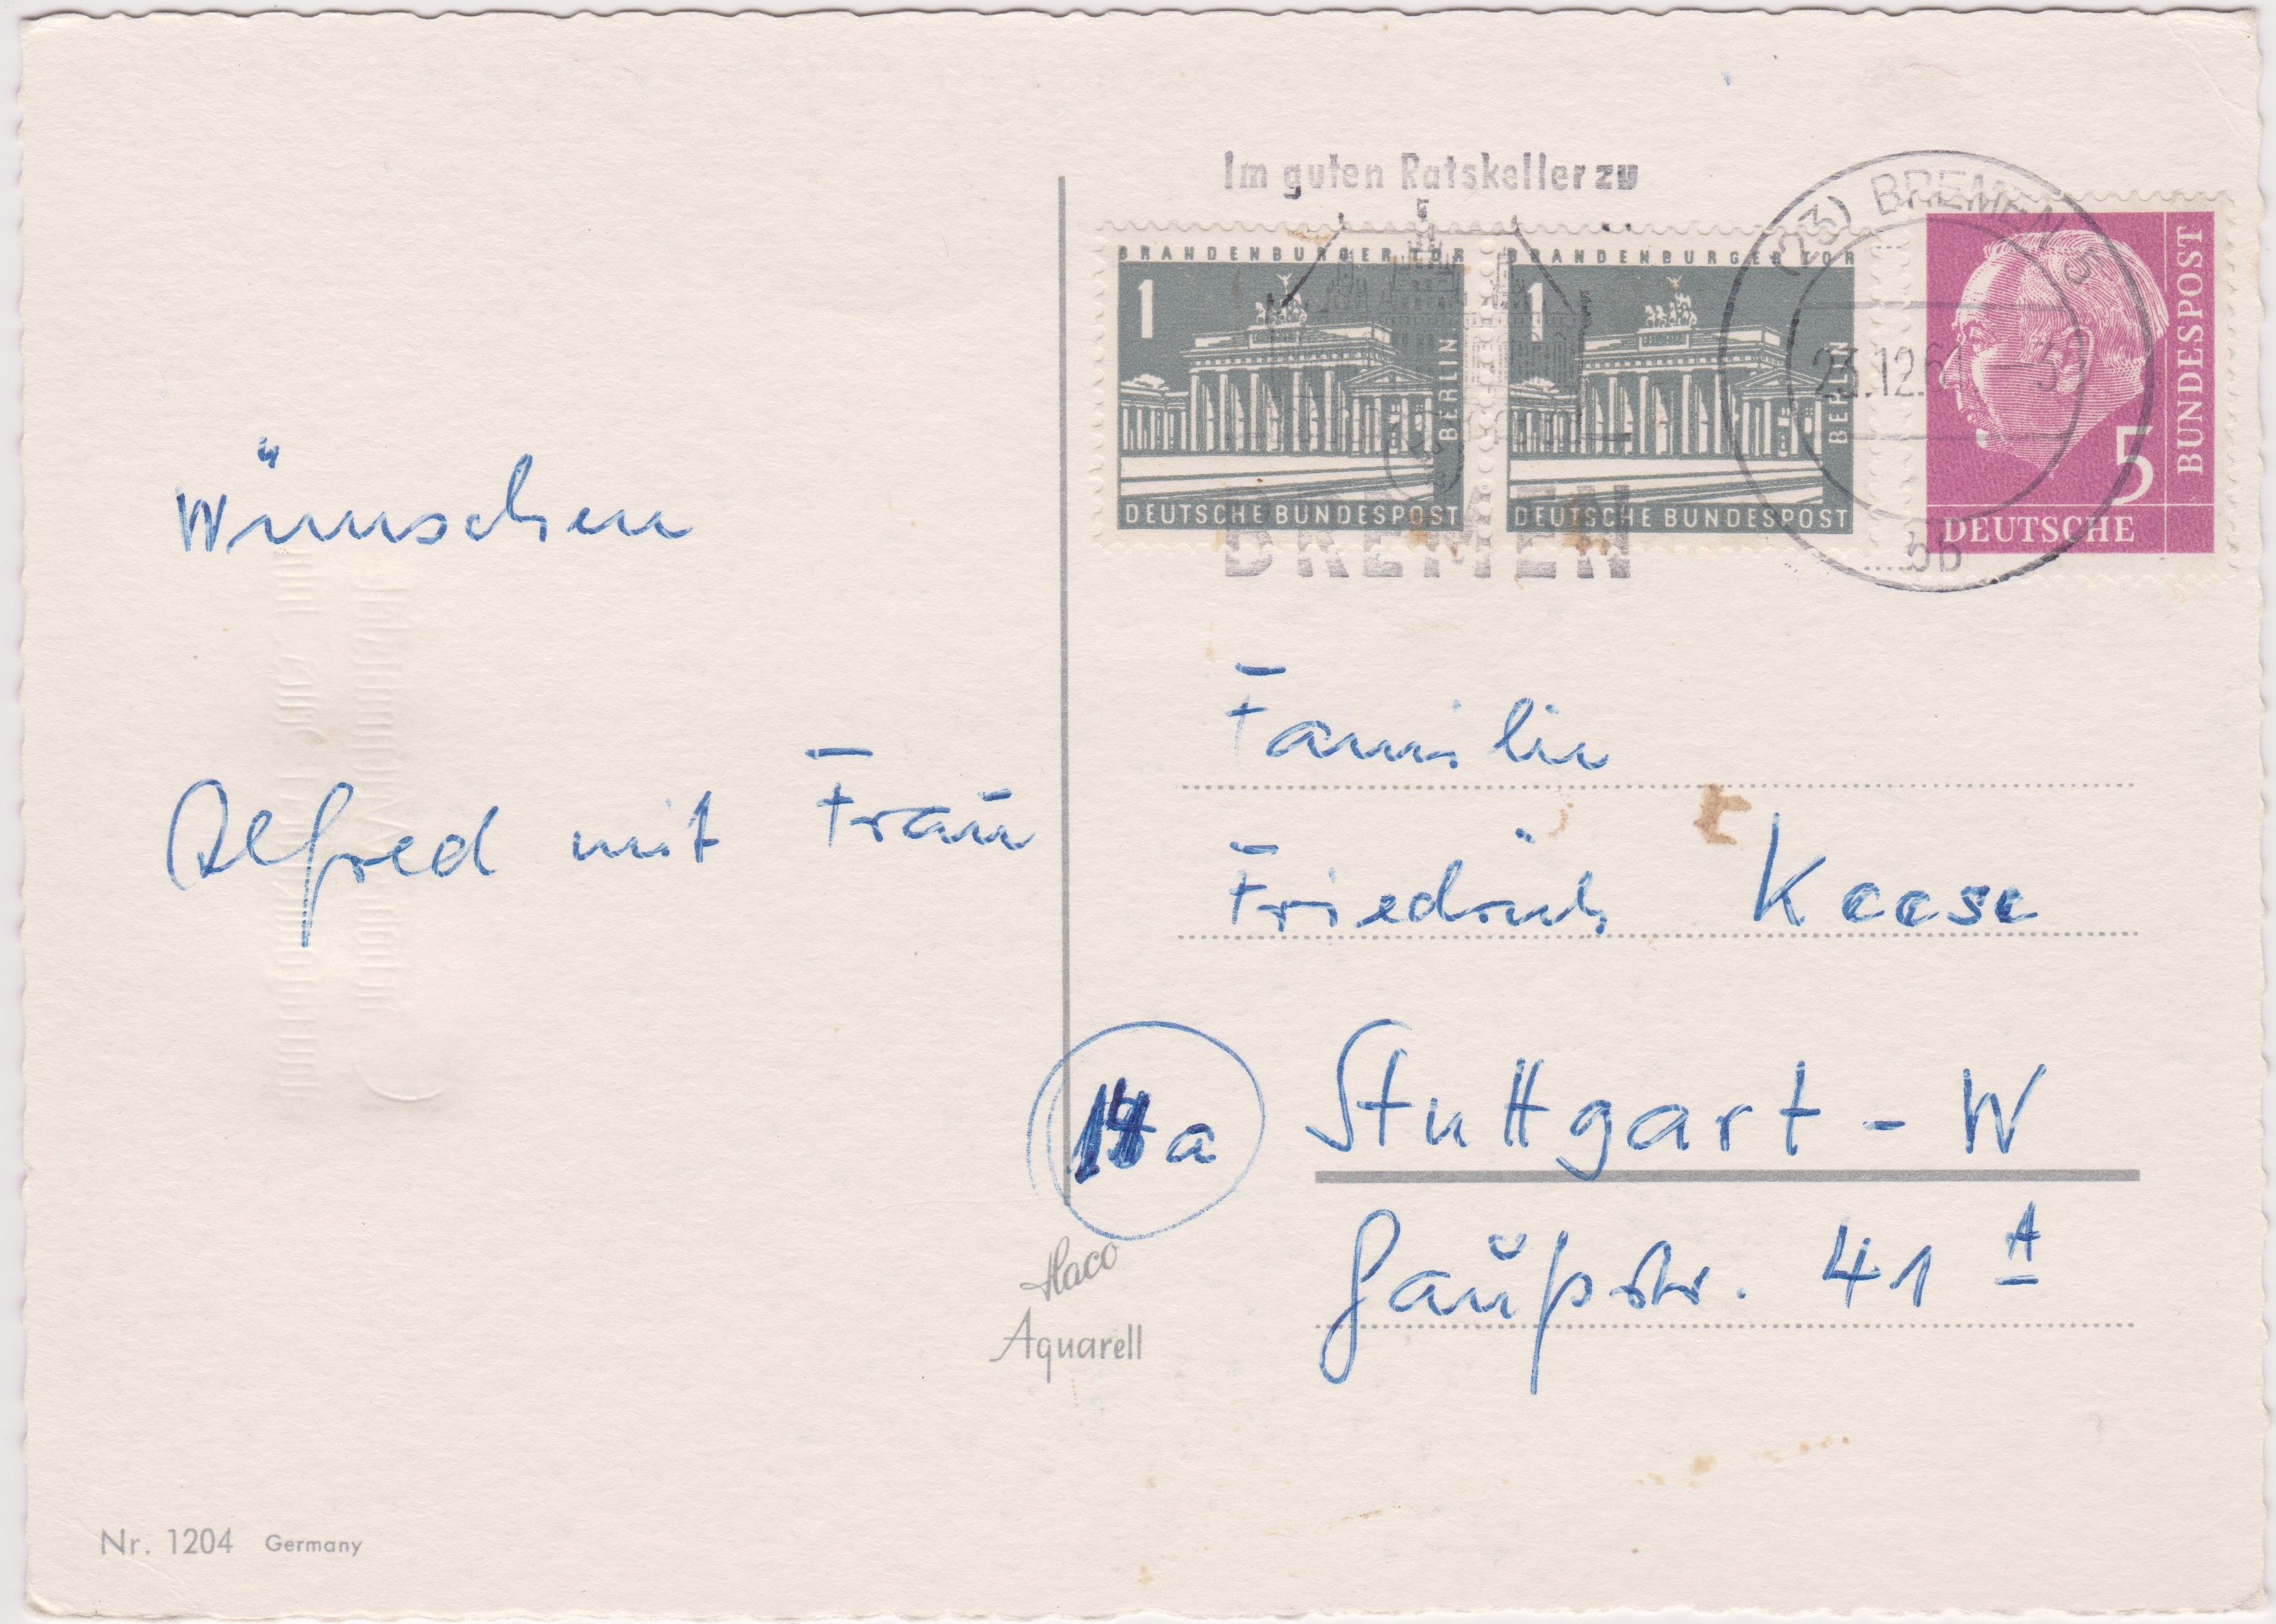 Im guten Ratskeller zu
BREMEN
(23) BREMEN 5
23.12.6
bb
BRANDENBURGER TOR
1
BERLIN
DEUTSCHE BUNDESPOST
BRANDENBURGER TOR
1
BERLIN
DEUTSCHE BUNDESPOST
5
DEUTSCHE
BUNDESPOST
Wünschen
Alfred mit Frau
Familie
Friedrich Keese
a Stuttgart - W
Gaußstr. 41 A
Haco
Aquarell
Nr. 1204 Germany